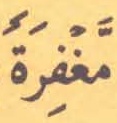 مَّغْفِرَةٌ